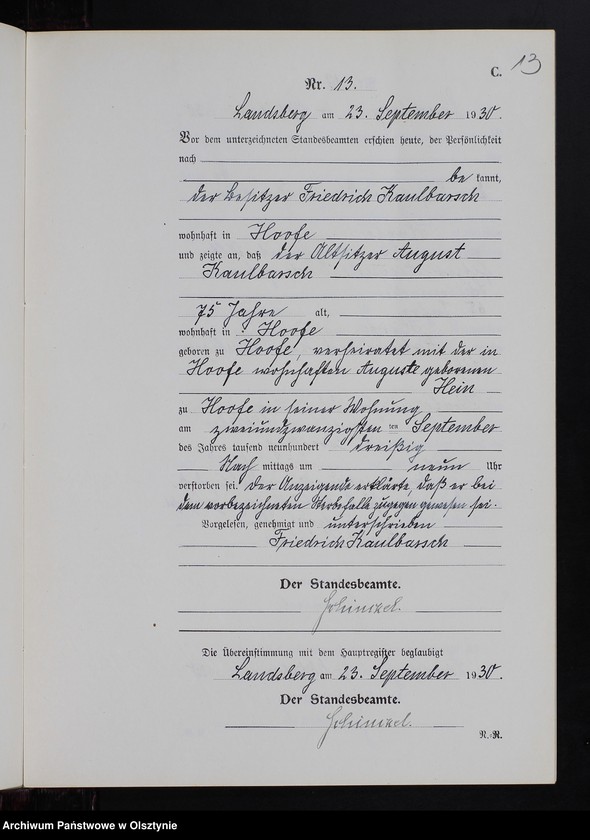 13
C.
Nr. 13.
Landsberg am 23. September 1930.
Vor dem unterzeichneten Standesbeamten erschien heute, der Persönlichkeit
nach
be kannt,
der Besitzer Friedrich Kaulbarsch
wohnhaft in Hoofe
und zeigte an, daß der Altsitzer August
Kaulbarsch
75 Jahre alt,
wohnhaft in Hoofe
geboren zu Hoofe, verheiratet mit der in
Hoofe wohnhaften Auguste geborenen
Hein
zu Hoofe in seiner Wohnung
am zweiundzwanzigsten ten September
des Jahres tausend neunhundert dreißig
Nach mittags um neun Uhr
verstorben sei. Der Anzeigende erklärte, daß er bei
dem vorbezeichneten Sterbefalle zugegen gewesen sei.
Vorgelesen, genehmigt und unterschrieben
Friedrich Kaulbarsch
Der Standesbeamte.
Die Übereinstimmung mit dem Hauptregister beglaubigt
Landsberg am 23. September 1930.
Der Standesbeamte.
N.-R.
Archiwum Państwowe w Olsztynie